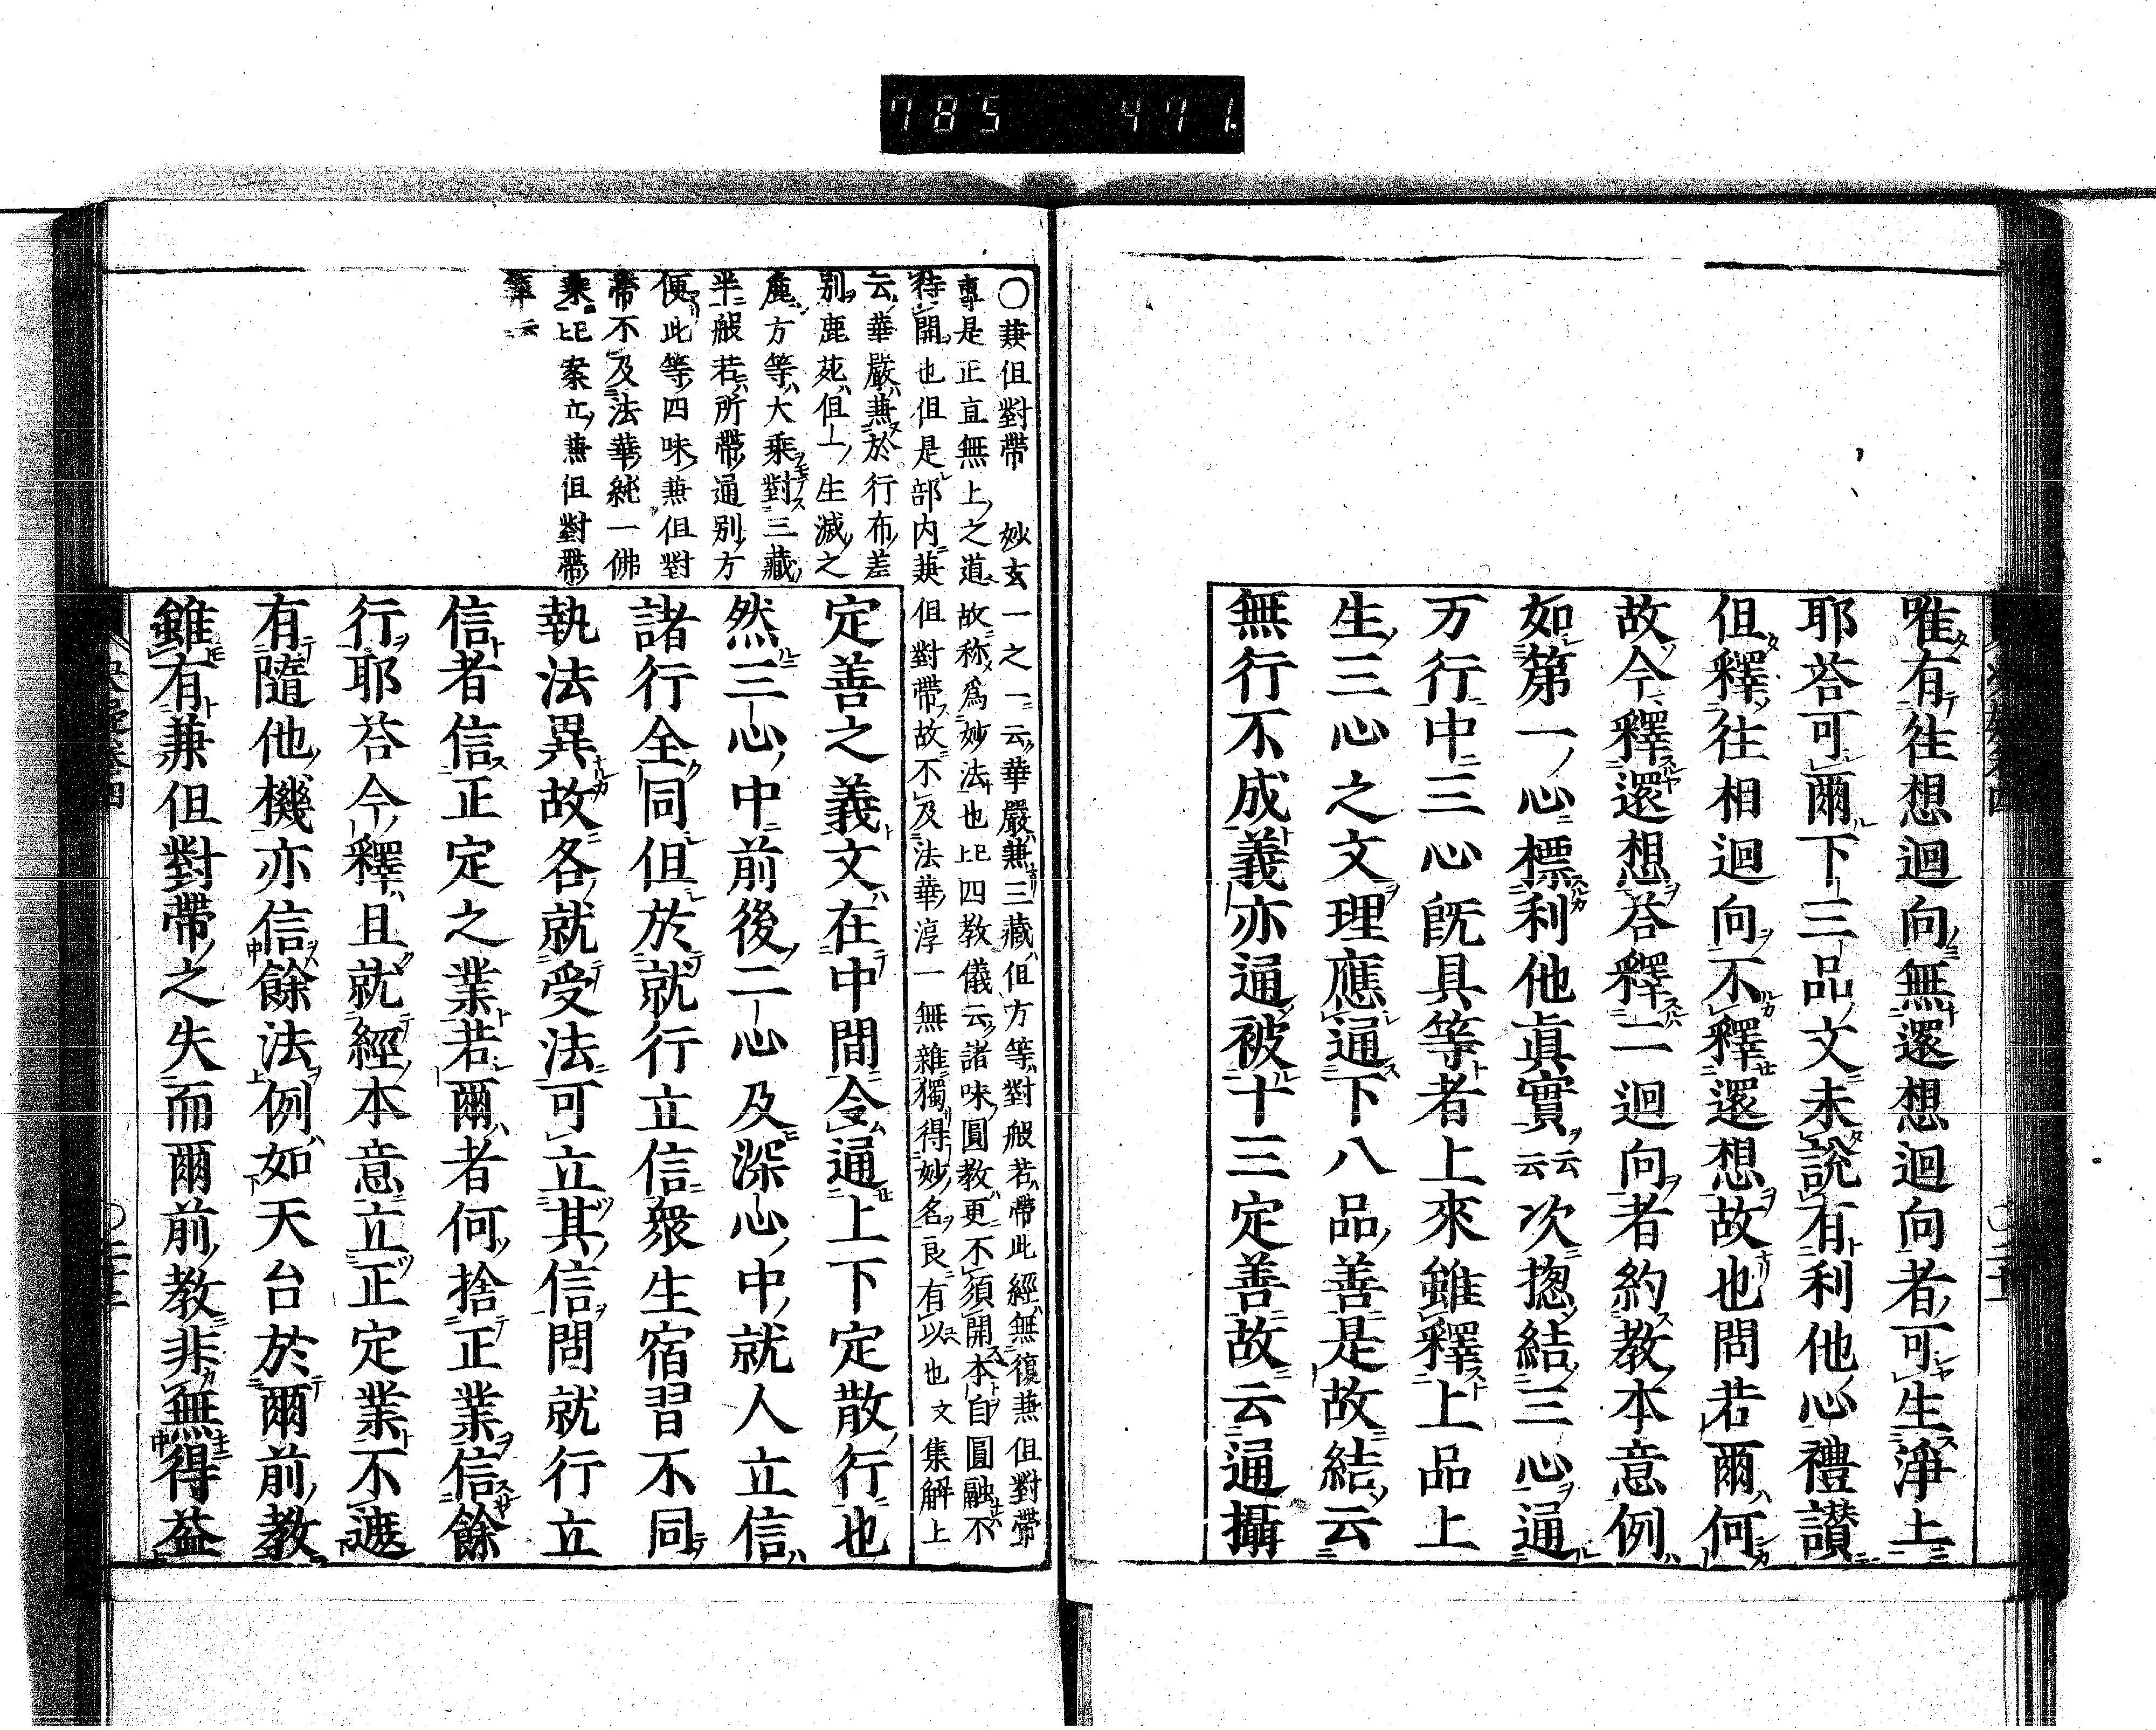 785 471
唯有往想迴向無還想迴向者可生淨上
耶荅可爾下三品文未說有利他心禮讃
但釋往相迴向不釋還想故也問若爾何
故今釋還想荅釋二迴向者約教本意例
如第一心標利他眞實云云次揔結三心通
万行中三心既具等者上來雖釋上品上
生三心之文理應通下八品善是故結云
無行不成義亦通被十三定善故云通攝
〇兼但對帶 妙玄一之一云華嚴兼三藏但方等對般若帶此經無復兼但對帶
專是正直無上之道故称爲妙法也上已四教儀云諸味圓教更不須開本自圓融不
待開也但是部内兼但對帶故不及法華淳一無雜獨得妙名良有以也文 集解上
云華嚴兼於行布差
別鹿苑但一生滅之
麁方等大乘對三藏
半般若所帶通別方
便此等四味兼但對
帶不及法華純一佛
乘上已案立兼但對帶
筆云
定善之義文在中間令通上下定散行也
然三心中前後二心及深心中就人立信
諸行全同但於就行立信衆生宿習不同
執法異故各就受法可立其信問就行立
信者信正定之業若爾者何捨正業信餘
行耶荅今釋且就經本意立正定業不遮
有隨他機亦信餘法例如天台於爾前教
雖有兼但對帶之失而爾前教非無得益